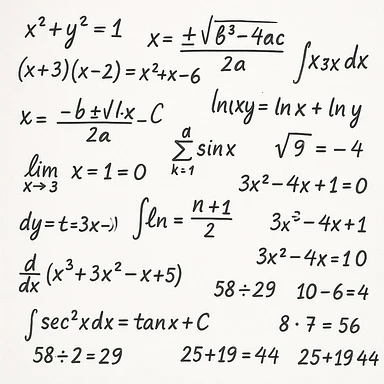 x² + y² = 1
x = ±√(b³ − 4ac) / 2a
(x+3)(x−2) = x²+x−6
∫x3x dx
x = −b ±√1·x − C / 2a
ln(xy = ln x + ln y
a ∑ k=1 sin x
√9 = −4
lim x→3 x = 1 = 0
3x² − 4x + 1 = 0
dy = t = 3x−)
∫ln = n+1 / 2
3x² − 4x + 1
3x² − 4x = 10
d/dx (x³ + 3x² − x + 5)
58 ÷ 29
10 − 6 = 4
∫sec² x dx = tan x + C
8 · 7 = 56
58 ÷ 2 = 29
25 + 19 = 44
25 + 19 44